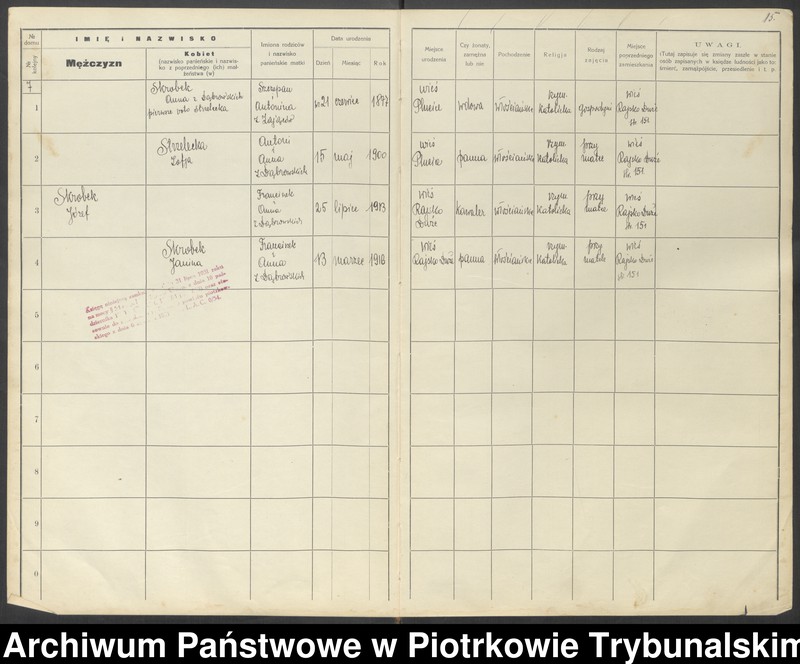 15.
№ domu
№ kolejny
IMIĘ i NAZWISKO
Mężczyzn
Kobiet
(nazwisko panieńskie i nazwisko z poprzedniego (ich) małżeństwa (w)
Imiona rodziców
i nazwisko
panieńskie matki
Data urodzenia
Dzień
Miesiąc
Rok
Miejsce
urodzenia
Czy żonaty,
zamężna
lub nie
Pochodzenie
Religja
Rodzaj
zajęcia
Miejsce
poprzedniego
zamieszkania
UWAGI.
(Tutaj zapisuje się zmiany zaszłe w stanie
osób zapisanych w księdze ludności jako to:
śmierć, zamążpójście, przesiedlenie i t. p.
7
1
Skrobek
Anna z Dąbrowskich
pierwszo voto Strzelecka
Szczepan
i
Antonina
z Zająców
21 czerwiec
wieś
wdowa
włościańskie
rzym
Katolicka
Gospodyni
wieś
Rajsko Duże
№ 151
2
Strzelecka
Zofja
Antoni
i
Anna
z Dąbrowskich
15 maj 1900
wieś
panna
włościańskie
rzym
Katolicka
przy
matce
wieś
Rajsko Duże
№ 151.
3
Skrobek
Józef
Franciszek
i
Anna
z Dąbrowskich
25 lipiec 1913
wieś
Rajsko
Duże
Kawaler
włościańskie
rzym
Katolicka
przy
matce
wieś
Rajsko Duże
№ 151
4
Skrobek
Janina
Franciszek
i
Anna
z Dąbrowskich
13 marzec 1918
wieś
Rajsko Duże
panna
włościańskie
rzym
Katolicka
przy
matce
wieś
Rajsko Duże
№ 151
5
6
7
8
9
0
Archiwum Państwowe w Piotrkowie Trybunalskim